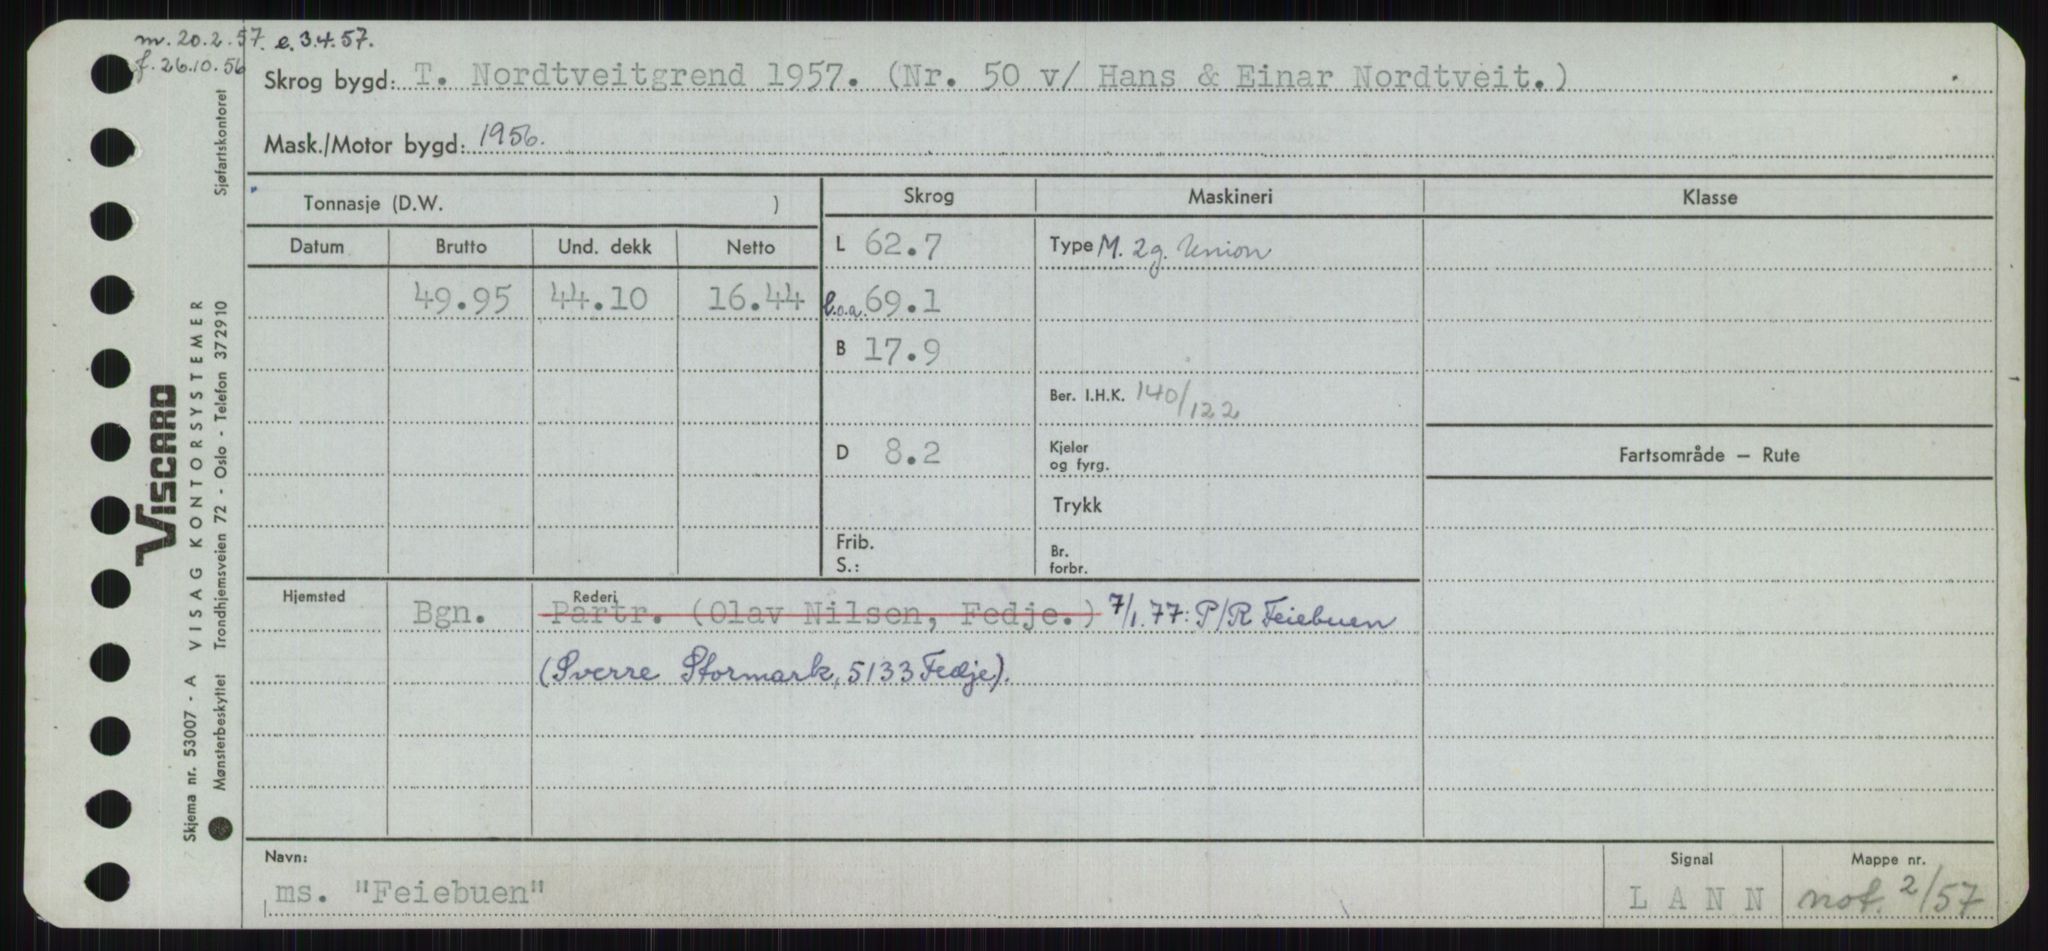 m. 20.2.57. e. 3.4.57.
f. 26.10.56
Skrog bygd: T. Nordtveitgrend 1957. (Nr. 50 v/ Hans & Einar Nordtveit.)
Mask./Motor bygd: 1956.
Tonnasje (D.W. )
Skrog Maskineri Klasse
Datum Brutto Und. dekk Netto
L 62.7 Type M. 2g. Union
49.95 44.10 16.44 l.o.a. 69.1
B 17.9
Ber. I.H.K. 140/122
D 8.2 Kjeler og fyrg.
Fartsområde — Rute
Trykk
Frib.
S.:
Br. forbr.
Hjemsted Bgn. Rederi Partr. (Olav Nilsen, Fedje.) 7/1.77: P/R Feiebuen
(Sverre Stormark, 5133 Fedje).
Navn: Signal Mappe nr.
ms. "Feiebuen" LANN not. 2/57
Sjøfartskontoret
VISCARD
VISAG KONTORSYSTEMER
Skjema nr. 53007 - A
Mønsterbeskyttet Trondhjemsveien 72 - Oslo - Telefon 372910